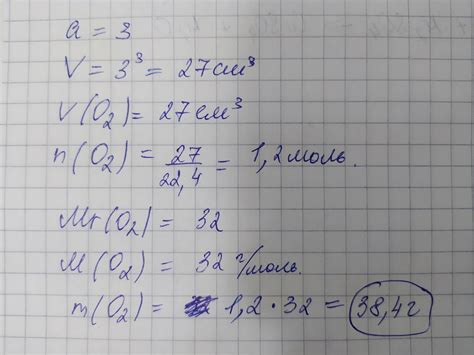 a = 3
V = 3³ = 27см³
V(O₂) = 27см³
n(O₂) = 27/22,4 = 1,2 моль.
Mr(O₂) = 32
M(O₂) = 32 г/моль.
m(O₂) = 1,2 · 32 = 38,4г